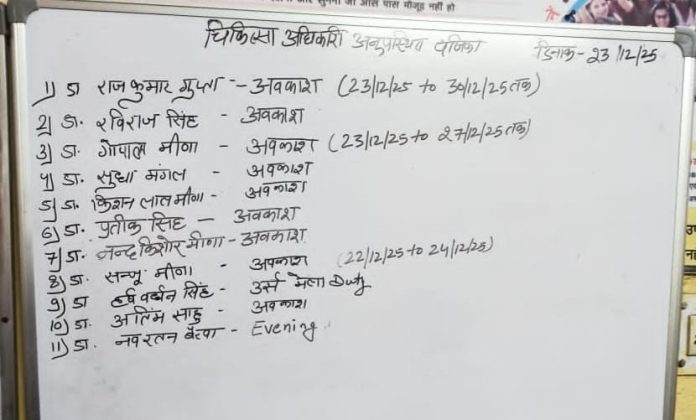 और सुनना जो आस पास मौजूद नहीं हो
चिकित्सा अधिकारी अनुपस्थित पंजिका दिनांक - 23/12/25
1) डा राजकुमार गुप्ता - अवकाश (23/12/25 to 30/12/25 तक)
2) डा. रविराज सिंह - अवकाश
3) डा. गोपाल मीणा - अवकाश (23/12/25 to 27/12/25 तक)
4) डा. सुधा मंगल - अवकाश
5) डा. किशन लाल मीणा - अवकाश
6) डा. प्रतीक सिंह - अवकाश
7) डा. नन्दकिशोर मीणा - अवकाश
8) डा. सन्जू मीणा - अवकाश (22/12/25 to 24/12/25)
9) डा हर्षवर्धन सिंह - उर्स मेला Duty
10) डा. अतिम साहु - अवकाश
11) डा. नवरतन - Evening